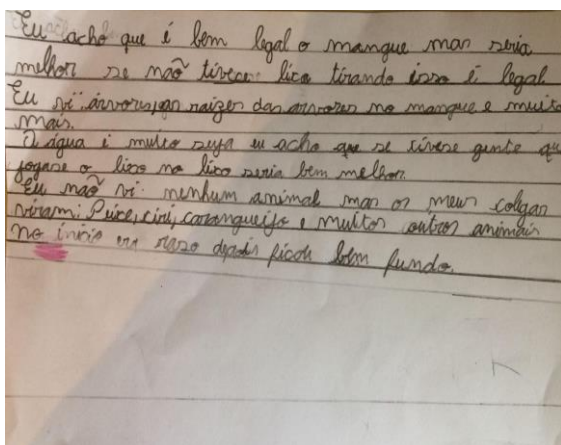 Eu acho que é bem legal o mangue mas seria
melhor se não tivece lico tirando isso é legal
Eu vi: árvores, as raizes das arvores no mangue e muito
mais.
A água é muito suja eu acho que se tivese gente que
jogase o lixo no lixo seria bem melhor.
Eu não vi nenhum animal mas os meus colgas
viram: Peixe, ciri, carangueijo e muitos outros animais
no inicio era raso depois ficou bem fundo.